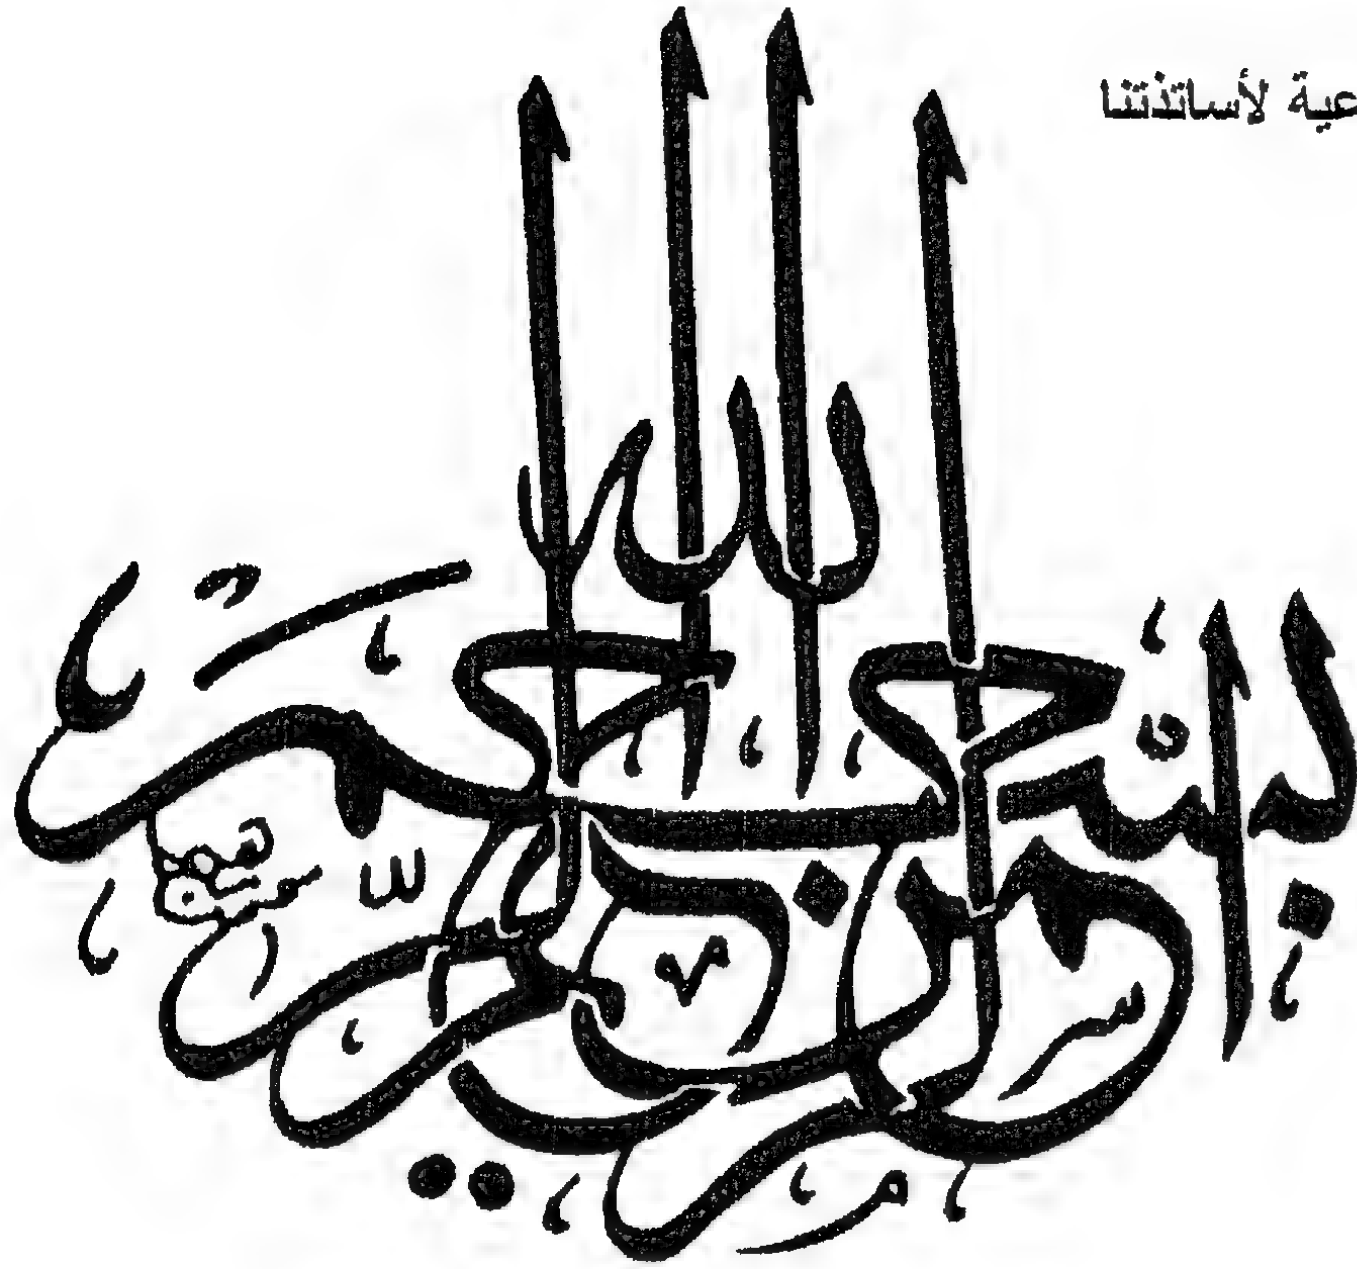 عية لأساتذتنا
بسم الله الرحمن الرحيم